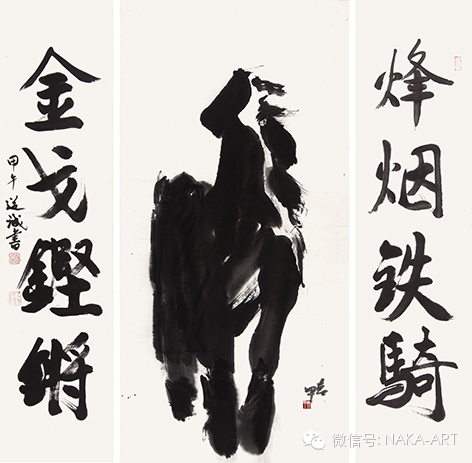 烽烟铁騎
金戈鏗鏘
甲午道诚書
微信号: NAKA-ART